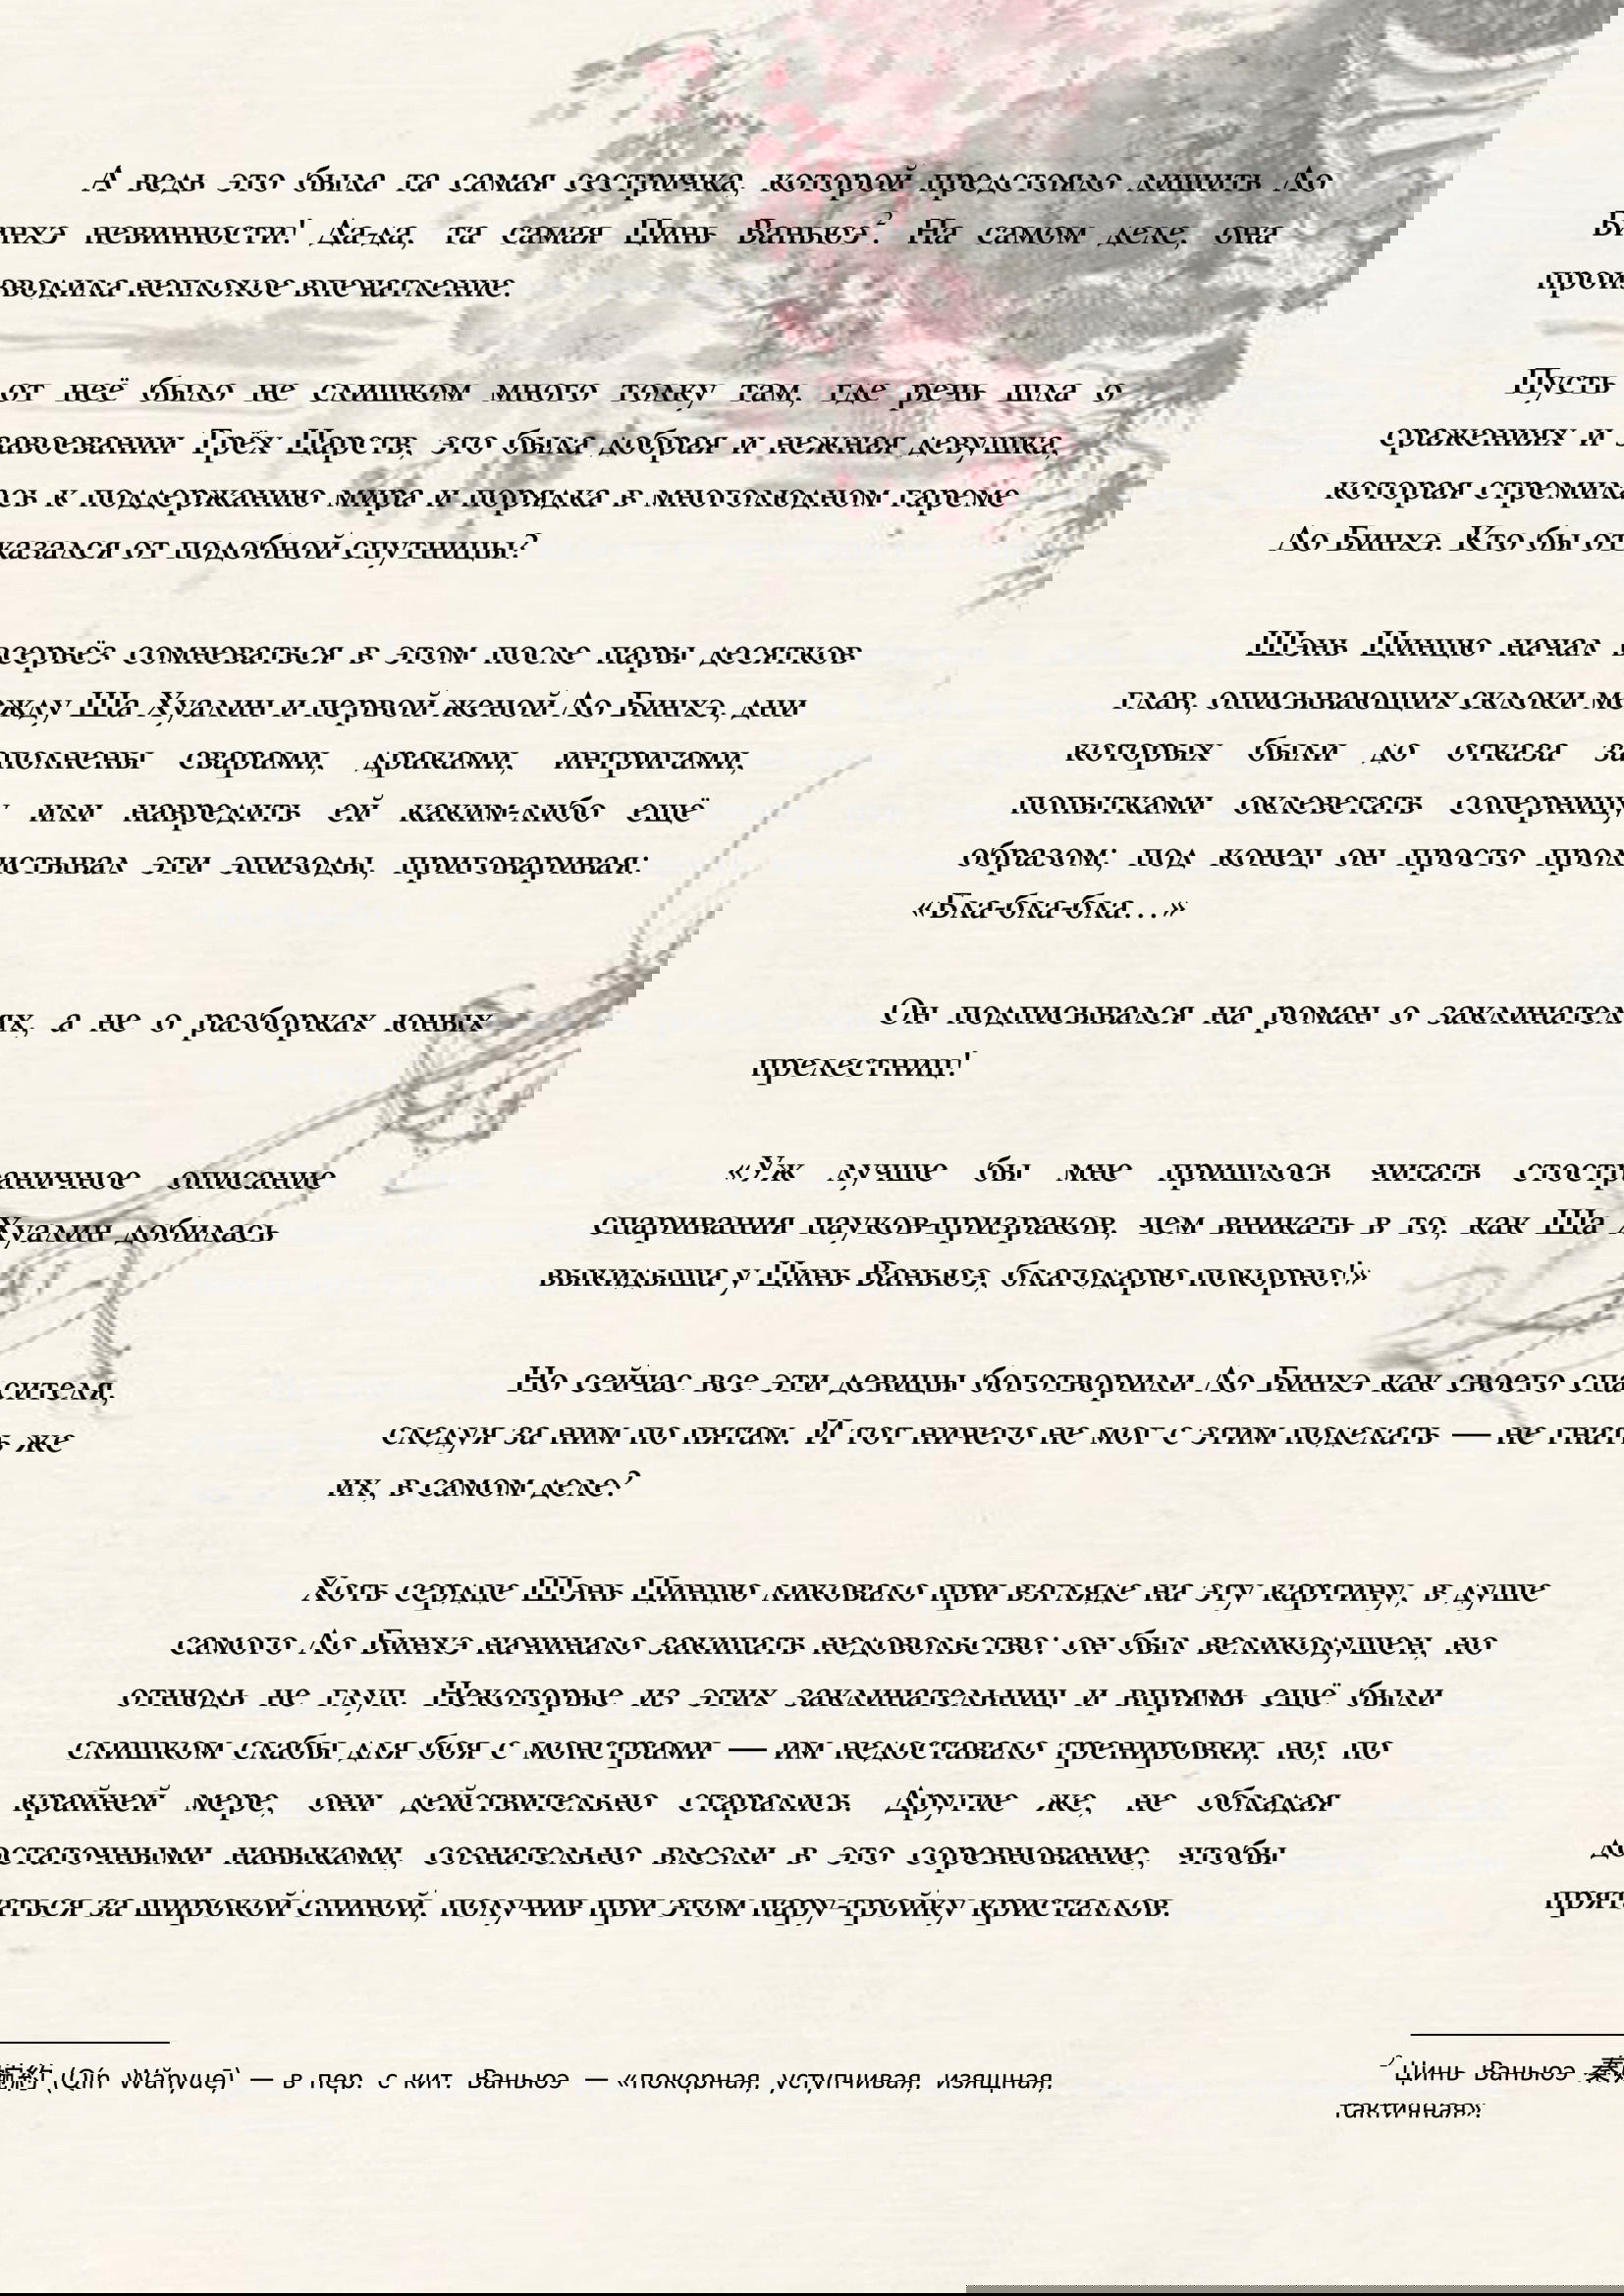 А ведь это была та самая сестричка, которой предстояло лишить Ло
Бинхэ невинности! Да-да, та самая Цинь Ваньюэ². На самом деле, она
производила неплохое впечатление.
Пусть от неё было не слишком много толку там, где речь шла о
сражениях и завоевании Трёх Царств, это была добрая и нежная девушка,
которая стремилась к поддержанию мира и порядка в многолюдном гареме
Ло Бинхэ. Кто бы отказался от подобной спутницы?
Шэнь Цинцю начал всерьёз сомневаться в этом после пары десятков
глав, описывающих склоки между Ша Хуалин и первой женой Ло Бинхэ, дни
которых были до отказа заполнены сварами, драками, интригами,
попытками оклеветать соперницу или навредить ей каким-либо ещё
образом; под конец он просто пролистывал эти эпизоды, приговаривая:
«Бла-бла-бла…»
Он подписывался на роман о заклинателях, а не о разборках юных
прелестниц!
«Уж лучше бы мне пришлось читать стостраничное описание
спаривания пауков-призраков, чем вникать в то, как Ша Хуалин добилась
выкидыша у Цинь Ваньюэ, благодарю покорно!»
Но сейчас все эти девицы боготворили Ло Бинхэ как своего спасителя,
следуя за ним по пятам. И тот ничего не мог с этим поделать — не гнать же
их, в самом деле?
Хоть сердце Шэнь Цинцю ликовало при взгляде на эту картину, в душе
самого Ло Бинхэ начинало закипать недовольство: он был великодушен, но
отнюдь не глуп. Некоторые из этих заклинательниц и впрямь ещё были
слишком слабы для боя с монстрами — им недоставало тренировки, но, по
крайней мере, они действительно старались. Другие же, не обладая
достаточными навыками, сознательно влезли в это соревнование, чтобы
прятаться за широкой спиной, получив при этом пару-тройку кристаллов.
² Цинь Ваньюэ 秦婉约 (Qín Wǎnyuē) — в пер. с кит. Ваньюэ — «покорная, уступчивая, изящная,
тактичная».